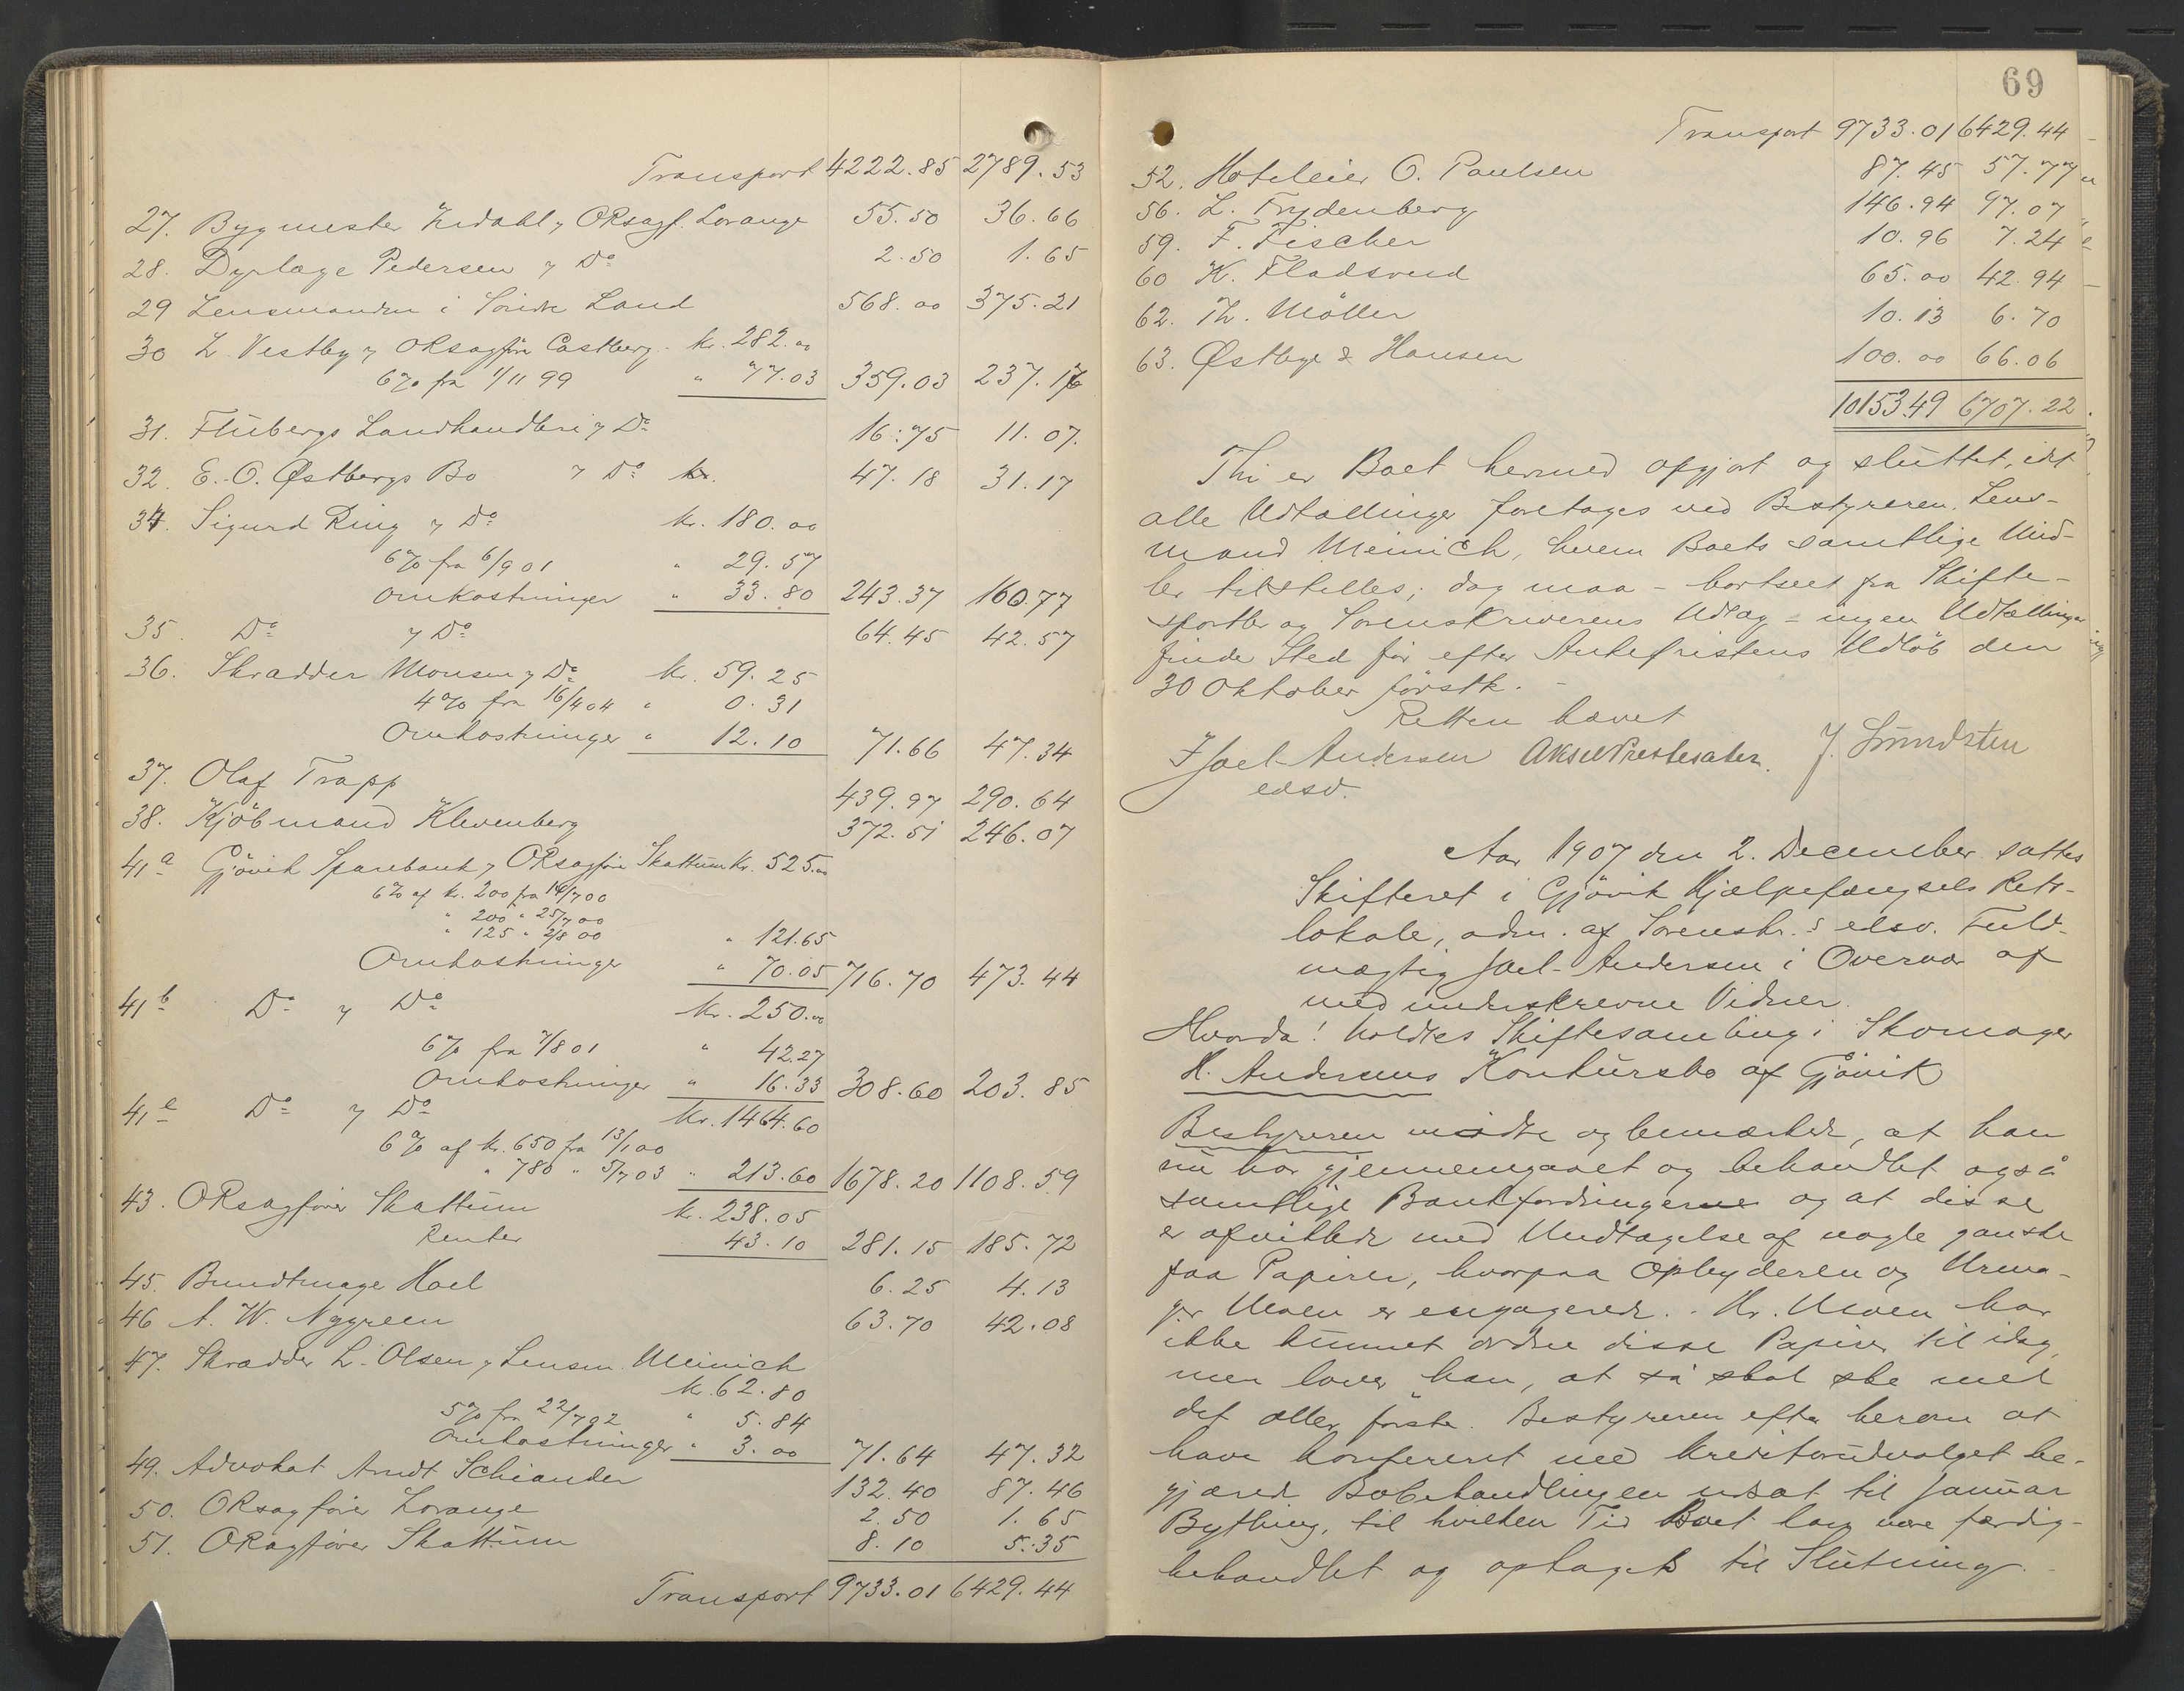 Transport 4222.85 2789.53
27. Bygmester Lidahl, ORsagf. Lorange 55.50 36.66
28. Dyrlæge Pedersen 7 Do 2.50 1.65
29 Lensmanden i Søndre Land 568.00 375.21
30 L. Vestby 7 ORsagfører Castberg kr. 282.00
6% fra 1/11 99 " 77.03 359.03 237.16
31. Flubergs Landhandleri 7 Do 16.75 11.07.
32. E. O. Østbergs Bo 7 Do kr. 47.18 31.17
34. Sigurd Ring 7 Do kr. 180.00
6% fra 6/9 01 " 29.57
Omkostninger " 33.80 243.37 160.77
35. Do 7 Do 64.45 42.57
36. Skrædder Monsen 7 Do kr. 59.25
4% fra 16/4 04 " 0.31
Omkostninger " 12.10 71.66 47.34
37. Olaf Trapp 439.97 290.64
38. Kjøbmand Klevenberg 372.51 246.07
41a Gjøvik Sparebank 7 ORsagfører Skattum kr. 525.00
6% af kr. 200 fra 14/7 00
" 200 " 25/7 00
" 125 " 2/8 00 " 121.65
Omkostninger " 70.05 716.70 473.44
41b Do 7 Do kr. 250.00
6% fra 7/8 01 " 42.27
Omkostninger " 16.33 308.60 203.85
41c Do 7 Do kr. 1464.60
6% af kr. 650 fra 13/1 00
" 780 " 5/7 03 " 213.60 1678.20 1108.59
43. ORsagfører Skattum kr. 238.05
Renter 43.10 281.15 185.72
45. Bundtmager Hoel 6.25 4.13
46 A. W. Nygreen 63.70 42.08
47. Skrædder L. Olsen 7 Lensm. Meinich
kr. 62.80
5% fra 22/7 02 " 5.84
Omkostninger " 3.00 71.64 47.32
49. Advokat Arndt Schiander 132.40 87.46
50. ORsagfører Lorange 2.50 1.65
51. ORsagfører Skattum 8.10 5.35
Transport 9733.01 6429.44
69
Transport 9733.01 6429.44
52. Hoteleier O. Paulsen 87.45 57.77
56. L. Frydenberg 146.94 97.07
59. F. Fischer 10.96 7.24
60 K. Fladsrud 65.00 42.94
62. Th. Møller 10.13 6.70
63. Østbye & Hansen 100.00 66.06
10153.49 6707.22
Thi er Boet hermed opgjort og sluttet, idet
alle Udtællinger foretages ved Bestyreren, Lens-
mand Meinich, hvem Boets samtlige Mid-
ler tilstilles; dog maa – bortseet fra Skifte-
sportler og Sorenskriverens Udlæg – ingen Udtællinger
finde Sted før efter Ankefristens Udløb den
30 Oktober førstk. –
Retten hævet
Hoel-Andersen Aksel Præstesæter. J. Sundsten
edsv.
Aar 1907 den 2. December sattes
Skifteret i Gjøvik Hjælpefængsels Rets-
lokale, adm. af Sorenskr.s edsv. Fuld-
mægtig Hoel-Andersen i Overvær af
medunderskrevne Vidner.
Hvorda! holdtes Skiftesamling i Skomager
H. Andersens Konkursbo af Gjøvik
Bestyreren mødte og bemærkede, at han
nu har gjennemgaaet og behandlet også
samtlige Bankfordringerne og at disse
er afviklede med Undtagelse af nogle ganske
faa Papirer, hvorpaa Opbyderen og Urma-
ger Moen er engagerede. Hr. Moen har
ikke kunnet ordne disse Papirer til idag,
men lover han, at så skal ske med
det aller første. Bestyreren efter herom at
have konfereret med kreditorudvalget be-
gjærede Bobehandlingen udsat til Januar
Bything, til hvilken Tid Boet kan være færdig-
behandlet og optaget til Slutning.